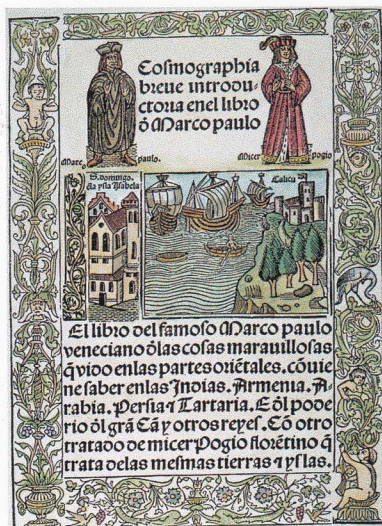 Cosmographia
breue introdu-
ctoria enel libro
d̃ Marco paulo
Marc paulo.
Micer pogio
S. domingo.
ẽla ysla Ysabela
Calicu
El libro del famoso Marco paulo
veneciano d̃las cosas marauillosas
q̃ vido enlas partes oriẽtales. cõuie
ne saber enlas Jndias. Armenia. A-
rabia. Persia ⁊ Tartaria. E d̃l pode
rio d̃l grã Cã y otros reyes. Cõ otro
tratado de micer Pogio florẽtino q̃
trata delas mesmas tierras ⁊ yslas.